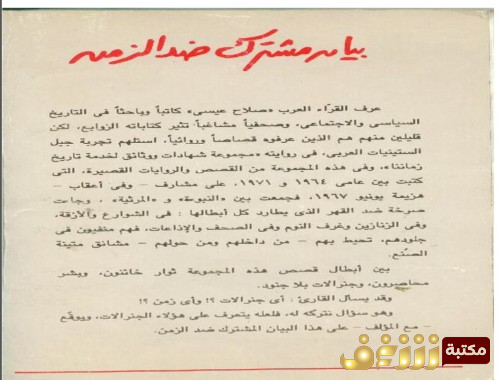 بيان مشترك ضد الزمن
عرف القراء العرب «صلاح عيسى» كاتباً وباحثاً فى التاريخ
السياسى والاجتماعى، وصحفياً مشاغباً تثير كتاباته الزوابع، لكن
قليلين منهم هم الذين عرفوه قصاصاً وروائياً، استلهم تجربة جيل
الستينيات العربى، فى روايته «مجموعة شهادات ووثائق لخدمة تاريخ
زماننا»، وفى هذه المجموعة من القصص والروايات القصيرة، التى
كتبت بين عامى ١٩٦٤ و ١٩٧١، على مشارف - وفى أعقاب -
هزيمة يونيو ١٩٦٧، فجمعت بين «النبوءة» و «المرثية» ، وجاءت
صرخة ضد القهر الذى يطارد كل أبطالها : فى الشوارع والأزقة،
وفى الزنازين وغرف النوم وفى الصحف والإذاعات، فهم منفيون فى
جلودهم، تحيط بهم - من داخلهم ومن حولهم - مشانق متينة
الصنع.
بين أبطال قصص هذه المجموعة ثوار خائنون، وبشر
محاصرون، وجنرالات بلا جنود.
وقد يسأل القارئ : أى جنرالات ؟! وأى زمن ؟!
وهو سؤال نتركه له، فلعله يتعرف على هؤلاء الجنرالات، ويوقع
- مع المؤلف - على هذا البيان المشترك ضد الزمن.
مكتبة